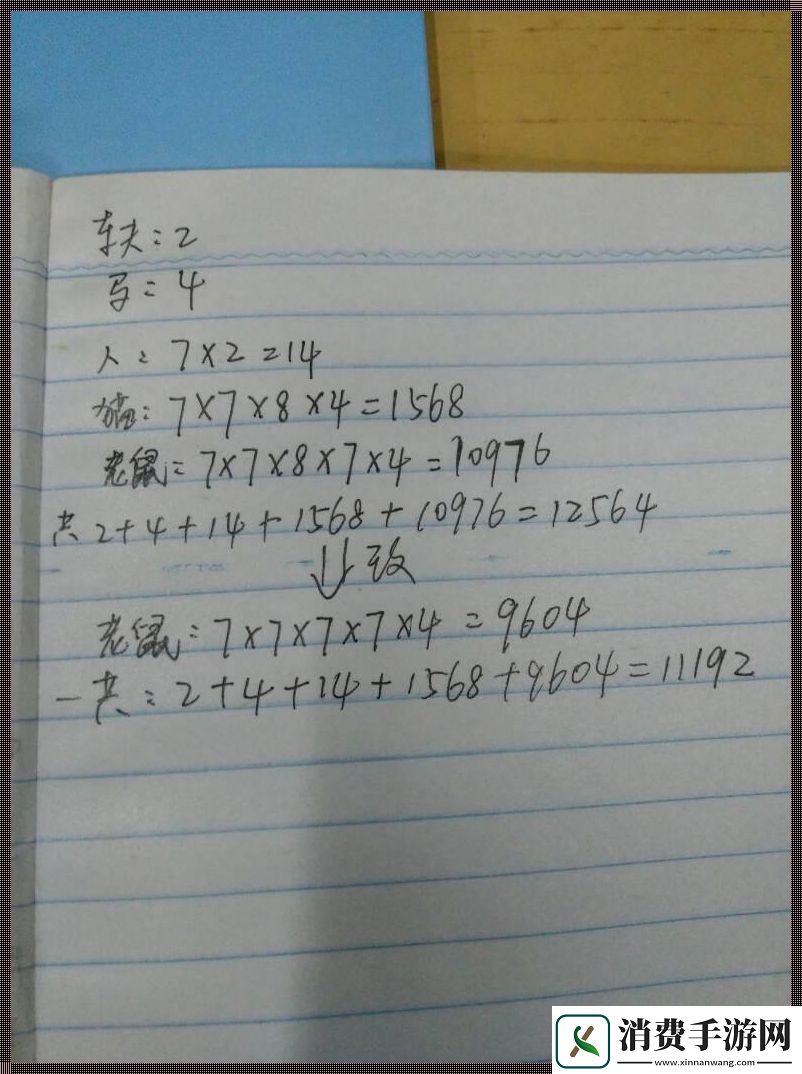 车夫：2
马：4
人：7×2=14
猫：7×7×8×4=1568
老鼠：7×7×8×7×4=10976
共2+4+14+1568+10976=12564
↓改
老鼠：7×7×7×7×4=9604
一共：2+4+14+1568+9604=11192
消费手游网
www.xinnanwang.com